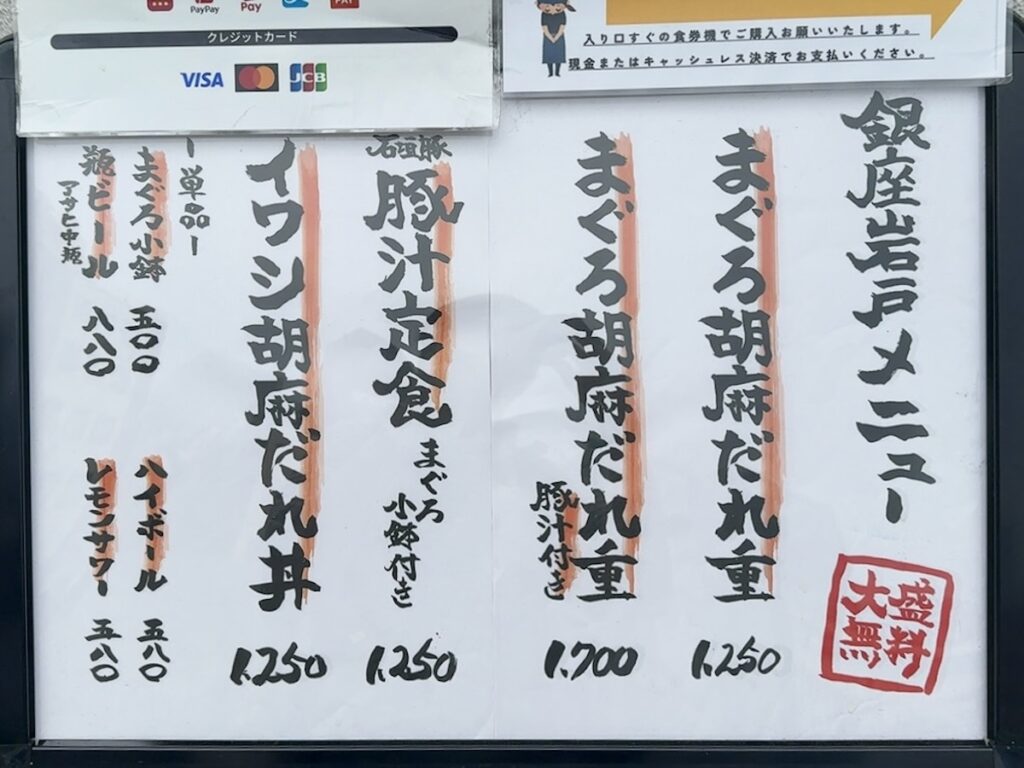 PayPay
Pay
PAY
クレジットカード
VISA
JCB
入り口すぐの食券機でご購入お願いいたします。
現金またはキャッシュレス決済でお支払いください。
銀座岩戸メニュー
大盛
無料
まぐろ胡麻だれ重
1.250
まぐろ胡麻だれ重
豚汁付き
1.700
石垣豚
豚汁定食
まぐろ
小鉢付き
1.250
イワシ胡麻だれ丼
1.250
ー単品ー
まぐろ小鉢 五〇〇
ハイボール 五八〇
瓶ビール 八八〇
アサヒ中瓶
レモンサワー 五八〇